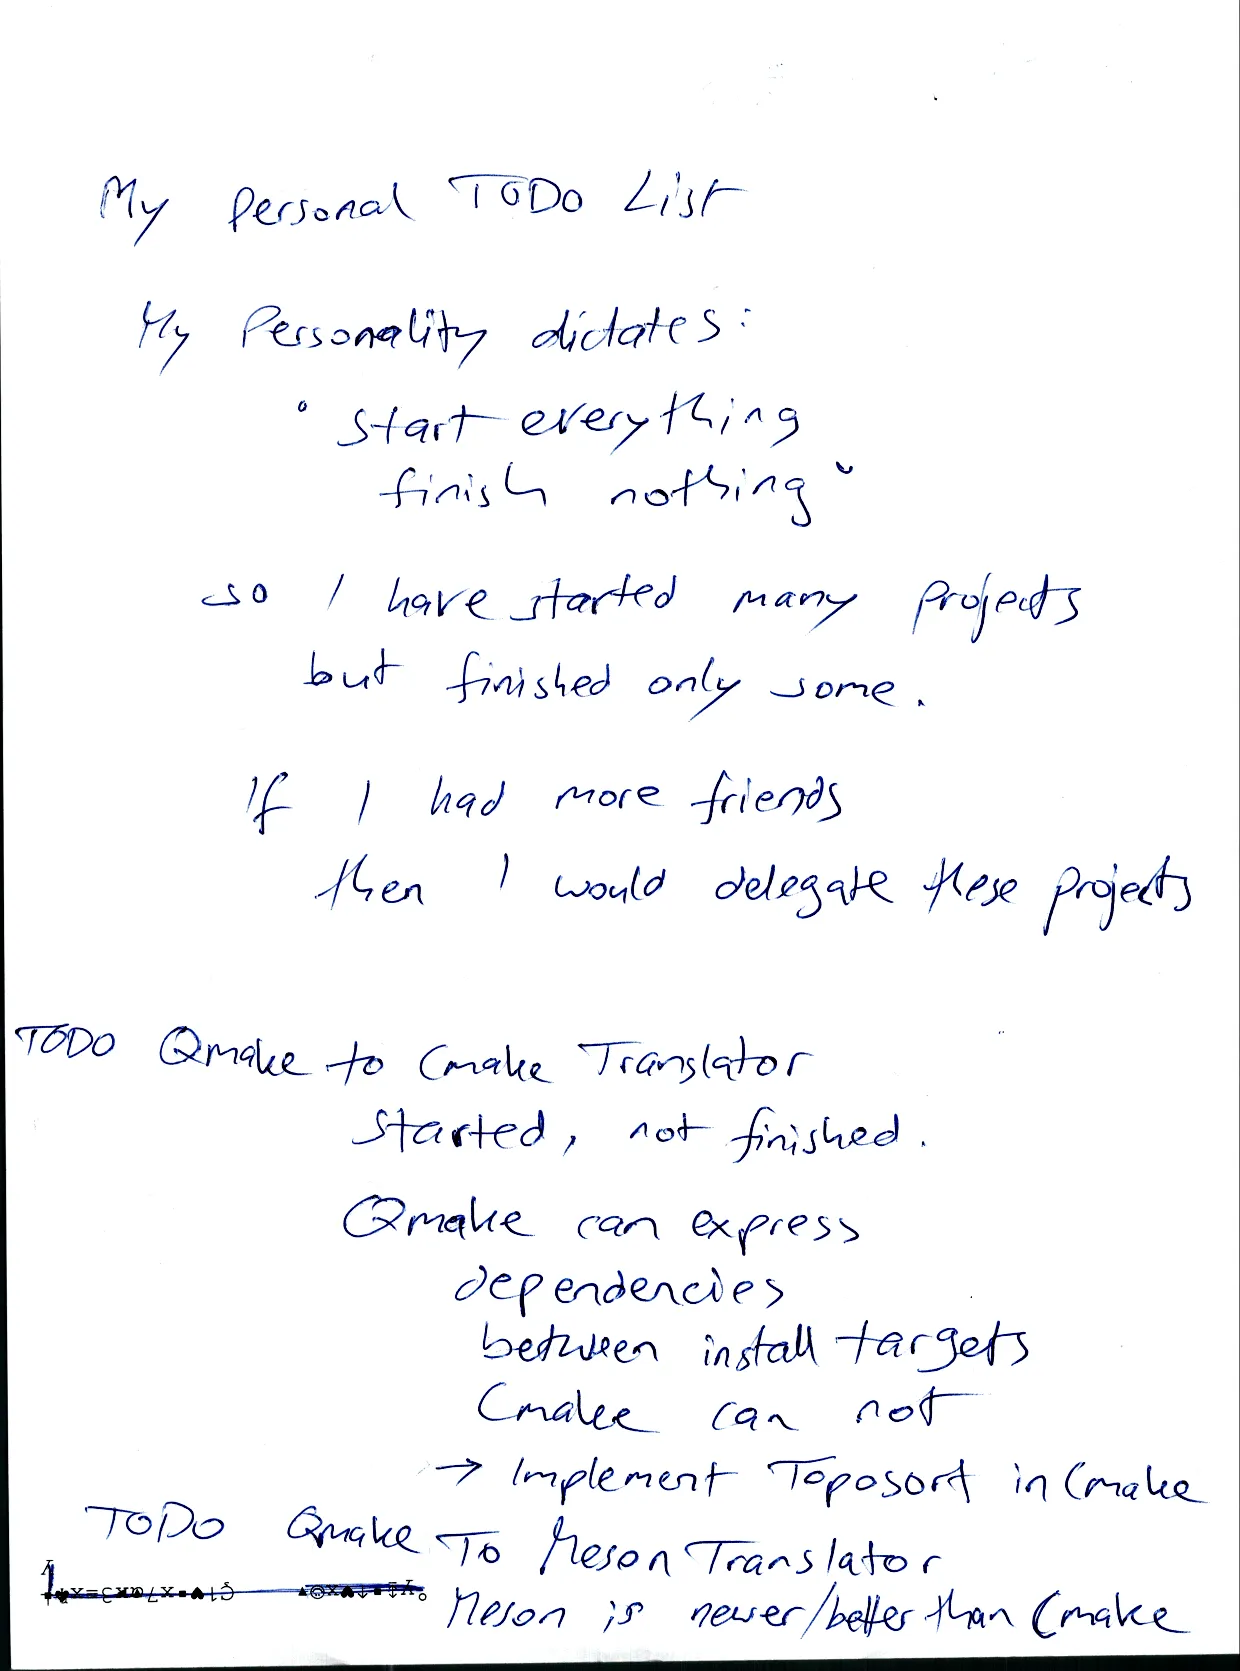 My personal TODO List
My Personality dictates:
" start everything
finish nothing "
so I have started many projects
but finished only some.
If I had more friends
then I would delegate these projects
TODO Qmake to Cmake Translator
started, not finished.
Qmake can express
dependencies
between install targets
Cmake can not
→ Implement Toposort in Cmake
TODO Qmake To Meson Translator
Meson is newer/better than Cmake